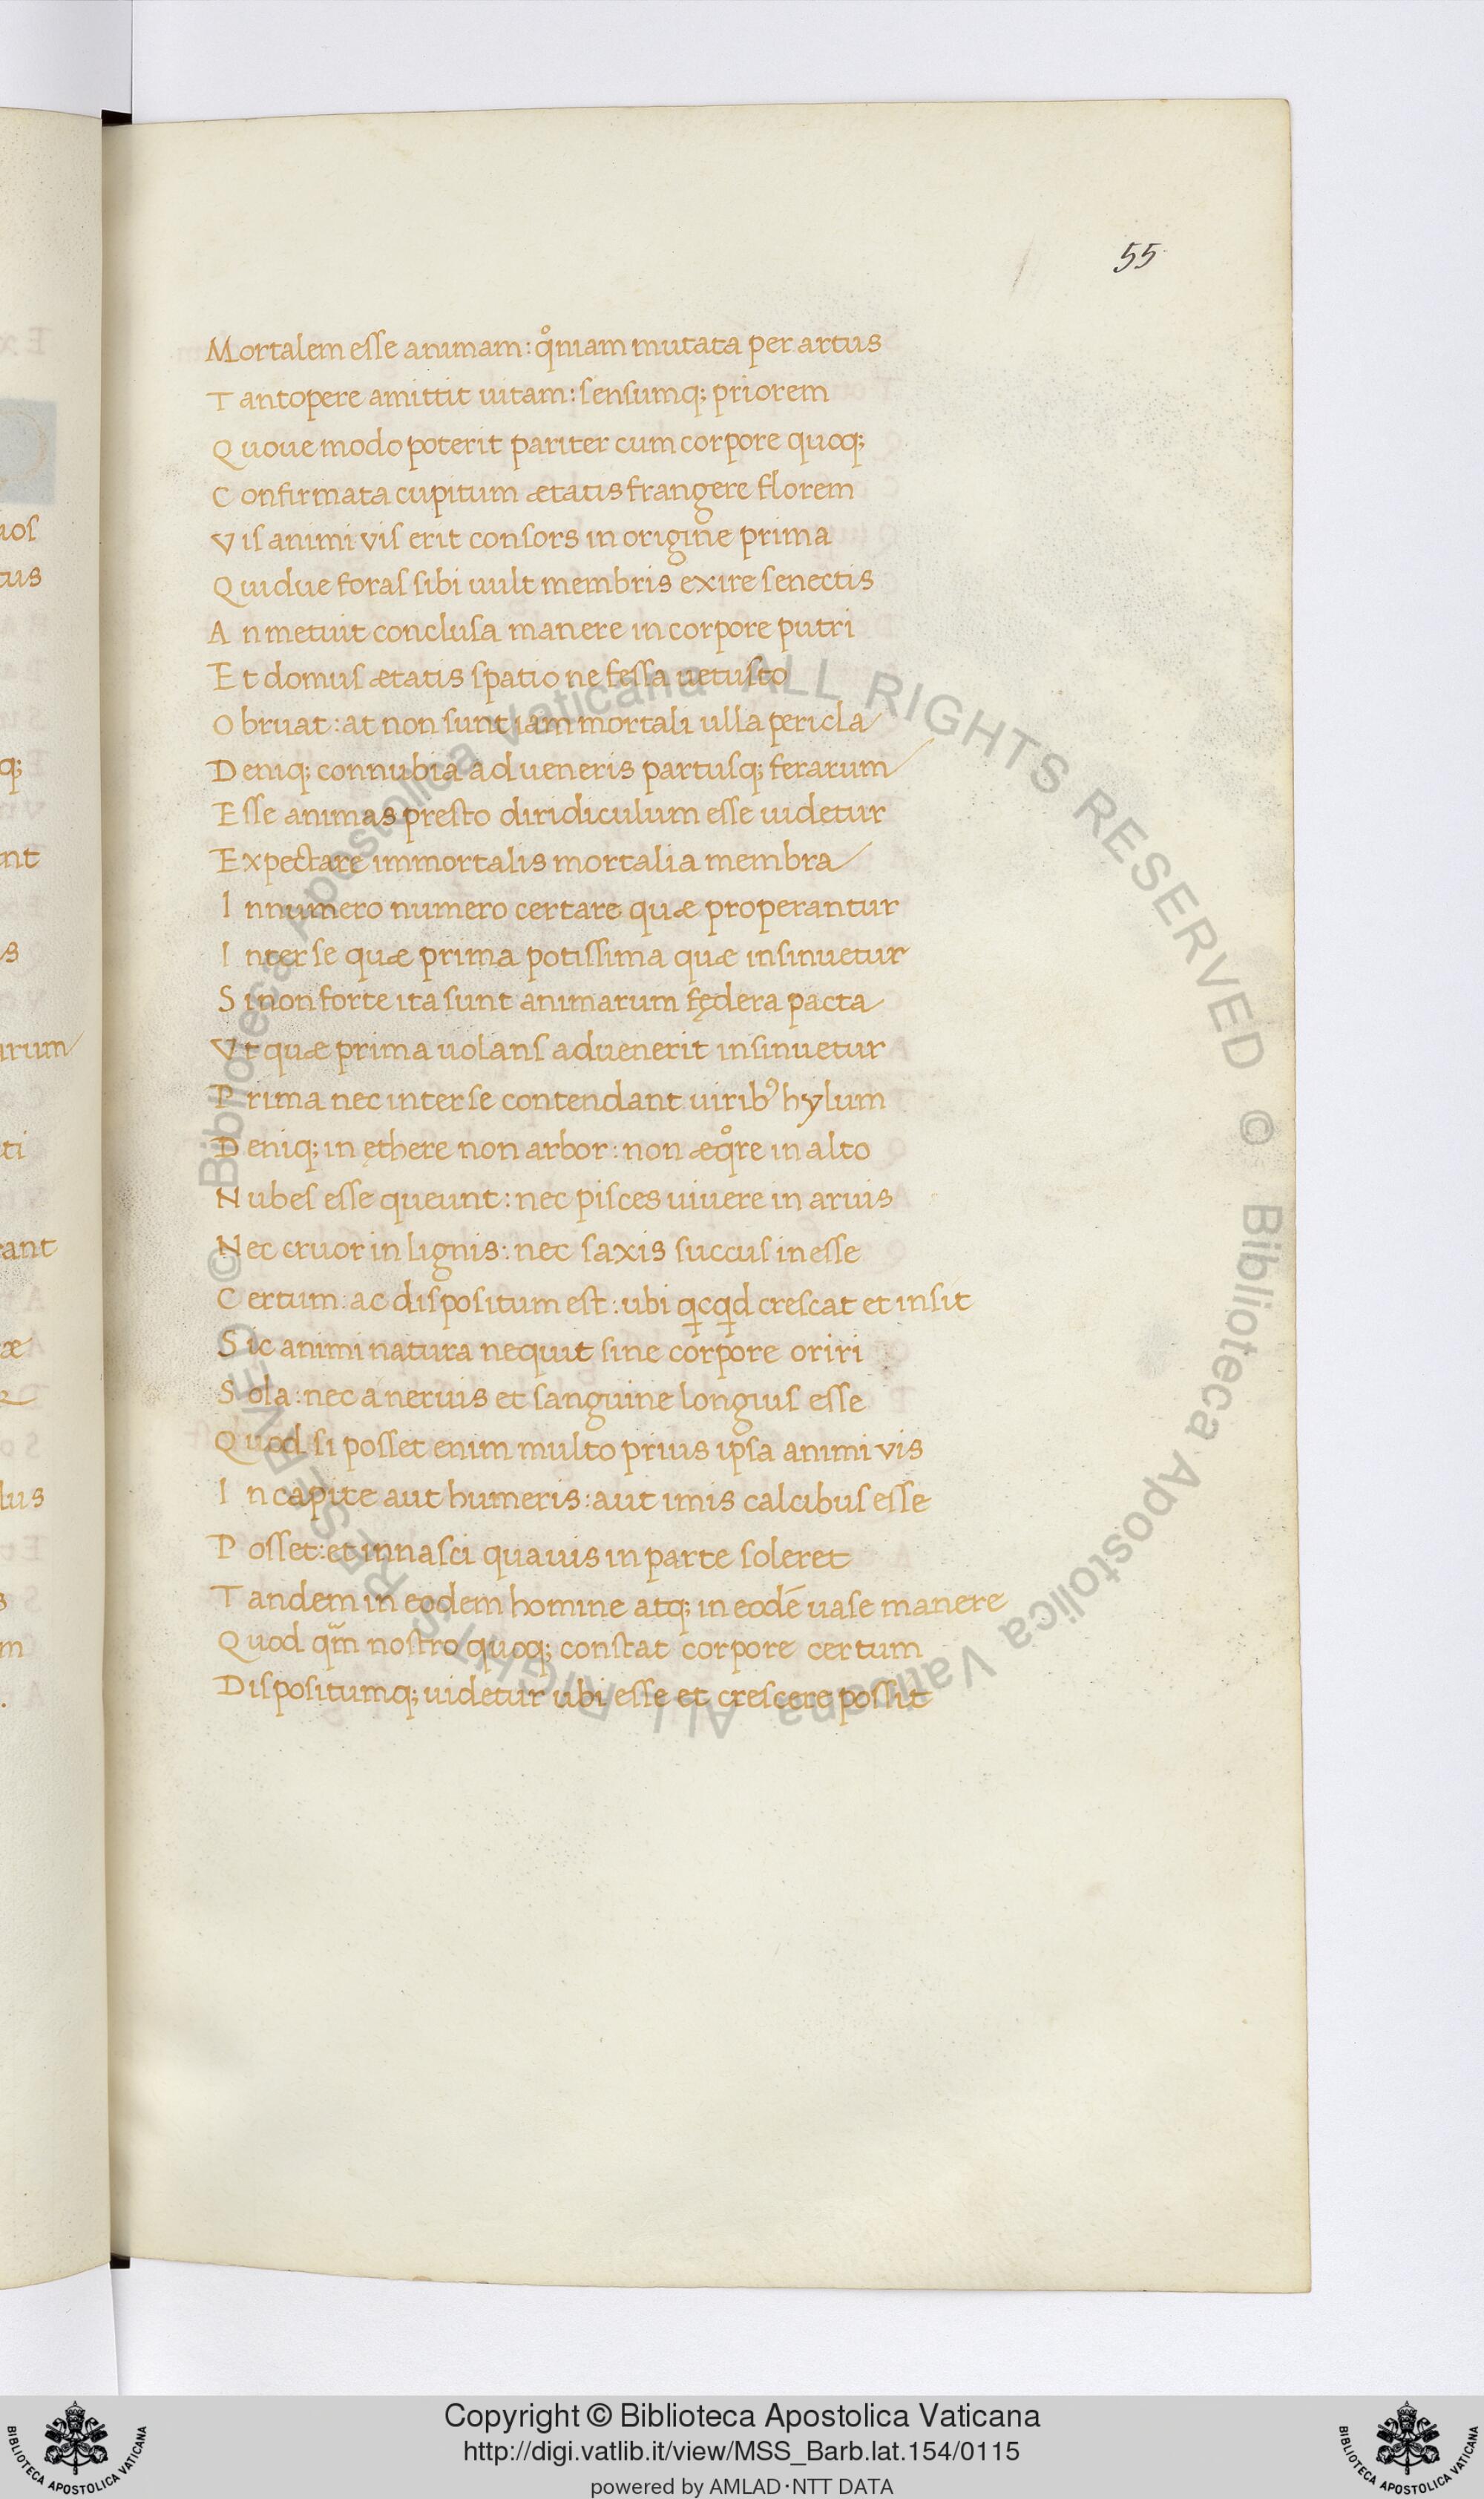 55
Mortalem esse animam: qͦniam mutata per artus
Tantopere amittit uitam: sensumq; priorem
Quoue modo poterit pariter cum corpore quoq;
Confirmata cupitum ætatis frangere florem
Vis animi vis erit consors in origine prima
Quidue foras sibi uult membris exire senectis
An metuit conclusa manere in corpore putri
Et domus ætatis spatio ne fessa uetusto
Obruat: at non sunt iam mortali ulla pericla
Deniq; connubia ad ueneris partusq; ferarum
Esse animas presto diridiculum esse uidetur
Expectare immortalis mortalia membra
Innumero numero certare quæ properantur
Inter se quæ prima potissima quæ insinuetur
Si non forte ita sunt animarum fędera pacta
Vt quæ prima uolans aduenerit insinuetur
Prima nec inter se contendant uirib⁹ hylum
Deniq; in ęthere non arbor: non æqͦre in alto
Nubes esse queunt: nec pisces uiuere in aruis
Nec cruor in lignis: nec saxis succus inesse
Certum: ac dispositum est: ubi ꝗcꝗd crescat et insit
Sic animi natura nequit sine corpore oriri
Sola: nec a neruis et sanguine longius esse
Quod si posset enim multo prius ipsa animi vis
In capite aut humeris: aut imis calcibus esse
Posset: et innasci quauis in parte soleret
Tandem in eodem homine atq; in eodē uase manere
Quod qm̄ nostro quoq; constat corpore certum
Dispositumq; uidetur ubi esse et crescere possit
uos
tus
q;
ent
s
arum
ti
rant
æ
lus
s
m
© Biblioteca Apostolica Vaticana ALL RIGHTS RESERVED
© Biblioteca Apostolica Vaticana ALL RIGHTS RESERVED
Copyright © Biblioteca Apostolica Vaticana
http://digi.vatlib.it/view/MSS_Barb.lat.154/0115
powered by AMLAD·NTT DATA
BIBLIOTECA APOSTOLICA VATICANA
BIBLIOTECA APOSTOLICA VATICANA